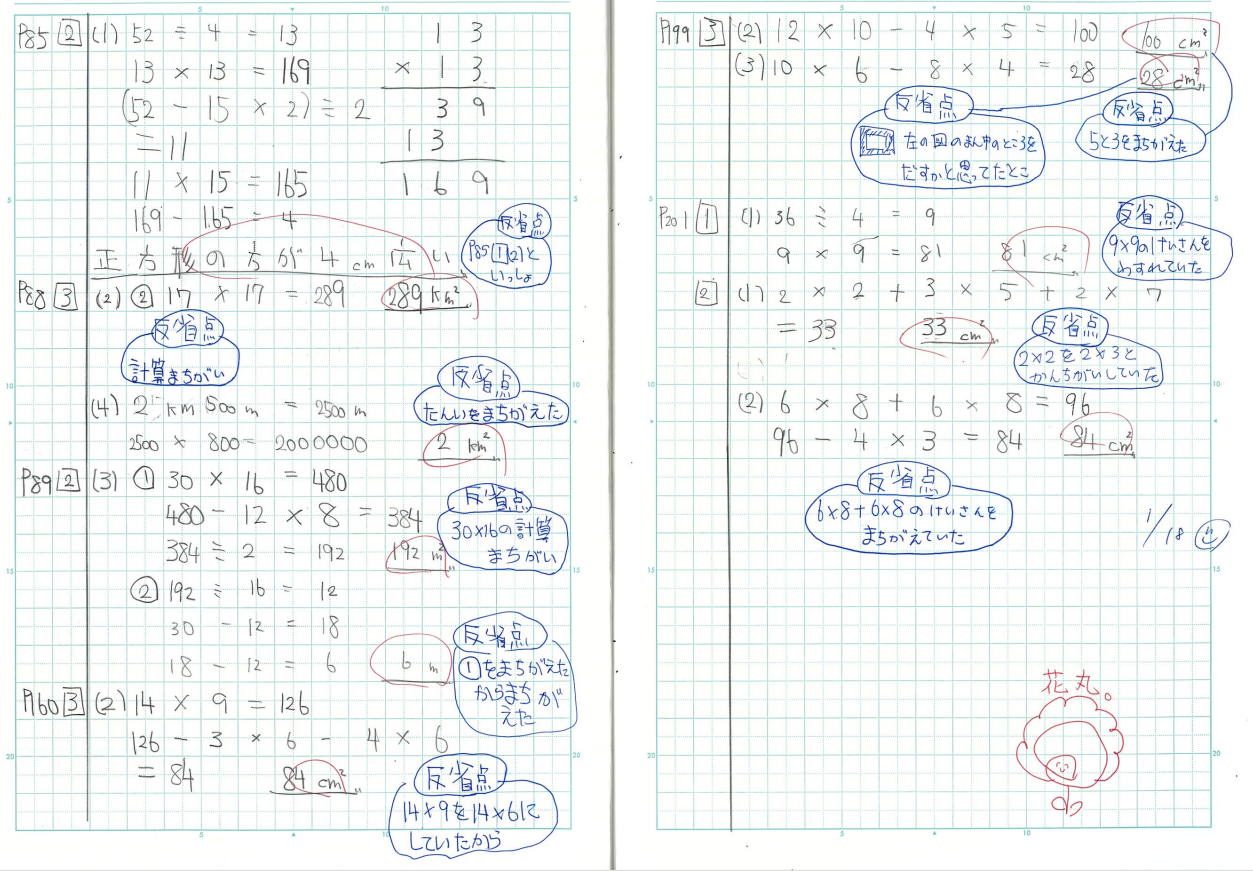 P85 2 (1) 52 ÷ 4 = 13
13 × 13 = 169
(52 - 15 × 2) ÷ 2
= 11
11 × 15 = 165
169 - 165 = 4
13
× 13
39
13
169
正方形の方が 4 cm² 広い
反省点
P85 1 (2)と
いっしょ
P88 3 (2) ② 17 × 17 = 289 289 km²
反省点
計算まちがい
(4) 2 km 500 m = 2500 m
2500 × 800 = 2000000 2 km²
反省点
たんいをまちがえた
P89 2 (3) ① 30 × 16 = 480
480 - 12 × 8 = 384
384 ÷ 2 = 192 192 m²
反省点
30×16の計算
まちがい
② 192 ÷ 16 = 12
30 - 12 = 18
18 - 12 = 6 6 m
反省点
①をまちがえた
からまちが
えた
P160 3 (2) 14 × 9 = 126
126 - 3 × 6 - 4 × 6
= 84 84 cm²
反省点
14×9を14×6に
していたから
P199 3 (2) 12 × 10 - 4 × 5 = 100 100 cm²
(3) 10 × 6 - 8 × 4 = 28 28 cm²
反省点
左の図のまん中のところを
だすかと思ってたとこ
反省点
5と3をまちがえた
P201 1 (1) 36 ÷ 4 = 9
9 × 9 = 81 81 cm²
反省点
9×9のけいさんを
わすれていた
2 (1) 2 × 2 + 3 × 5 + 2 × 7
= 33 33 cm²
反省点
2×2を2×3と
かんちがいしていた
(2) 6 × 8 + 6 × 8 = 96
96 - 4 × 3 = 84 84 cm²
反省点
6×8+6×8のけいさんを
まちがえていた
1/18
花丸。
5
10
5
10
15
20
5
10
5
10
5
10
15
20
5
10